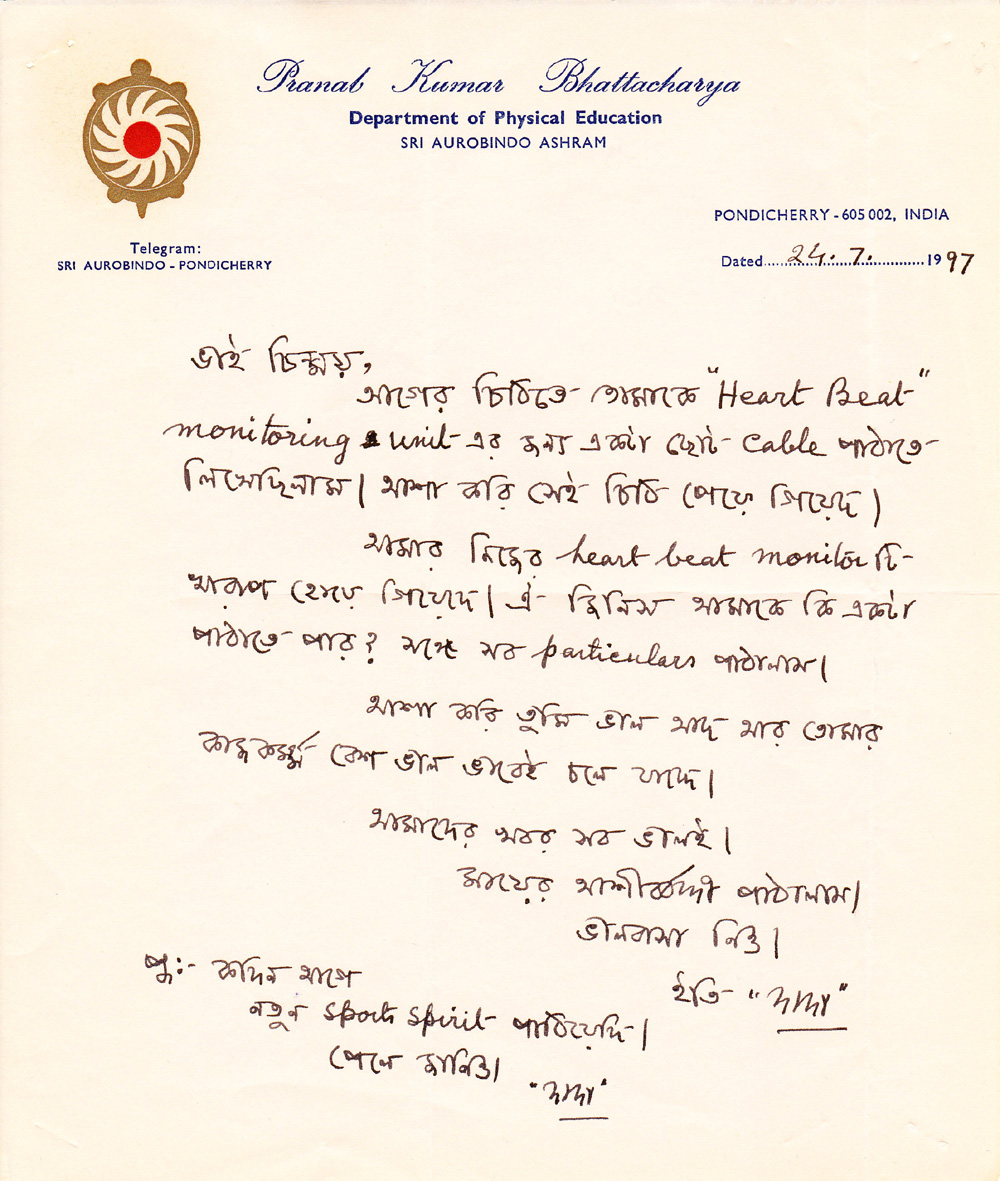 Pranab Kumar Bhattacharya
Department of Physical Education
SRI AUROBINDO ASHRAM
PONDICHERRY - 605 002, INDIA
Telegram:
SRI AUROBINDO - PONDICHERRY
Dated 24. 7. 1997
ভাই চিন্ময়,
আগের চিঠিতে তোমাকে "Heart Beat"
monitoring unit এর জন্য একটা ছোট cable পাঠাতে
লিখেছিলাম। আশা করি সেই চিঠি পেয়ে গিয়েছ।
আমার নিজের heart beat monitor টি
খারাপ হোয়ে গিয়েছে। ঐ জিনিস আমাকে কি একটা
পাঠাতে পার? সঙ্গে সব particulars পাঠালাম।
আশা করি তুমি ভাল আছ আর তোমার
কাজকর্ম্ম বেশ ভাল ভাবেই চলে যাচ্ছে।
আমাদের খবর সব ভালই।
মায়ের আশীর্ব্বাদ পাঠালাম।
ভালবাসা নিও।
ইতি "দাদা"
পুঃ- কদিন আগে
নতুন sports spirit পাঠিয়েছি।
পেলে জানিও।
"দাদা"